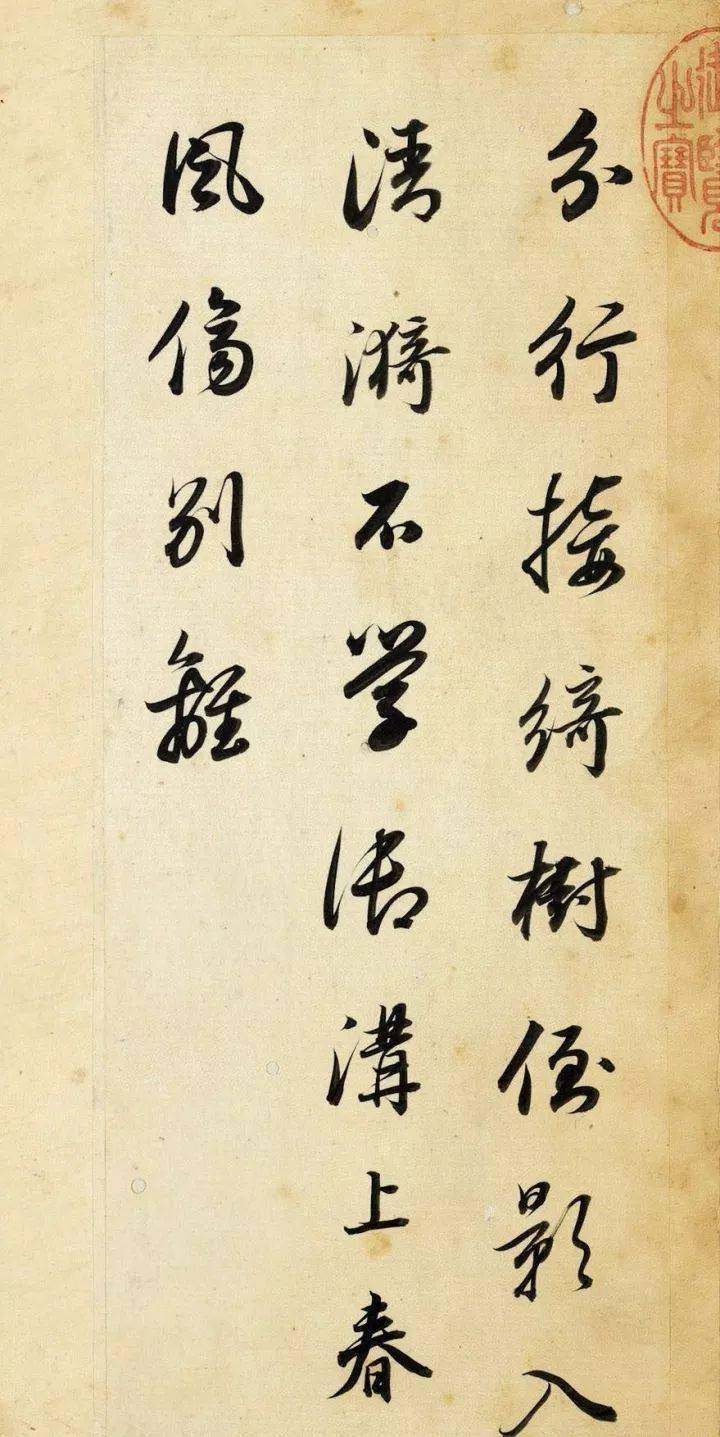 御覽
之寶
分行接綺樹倒影入
清漪不學御溝上春
風傷別離